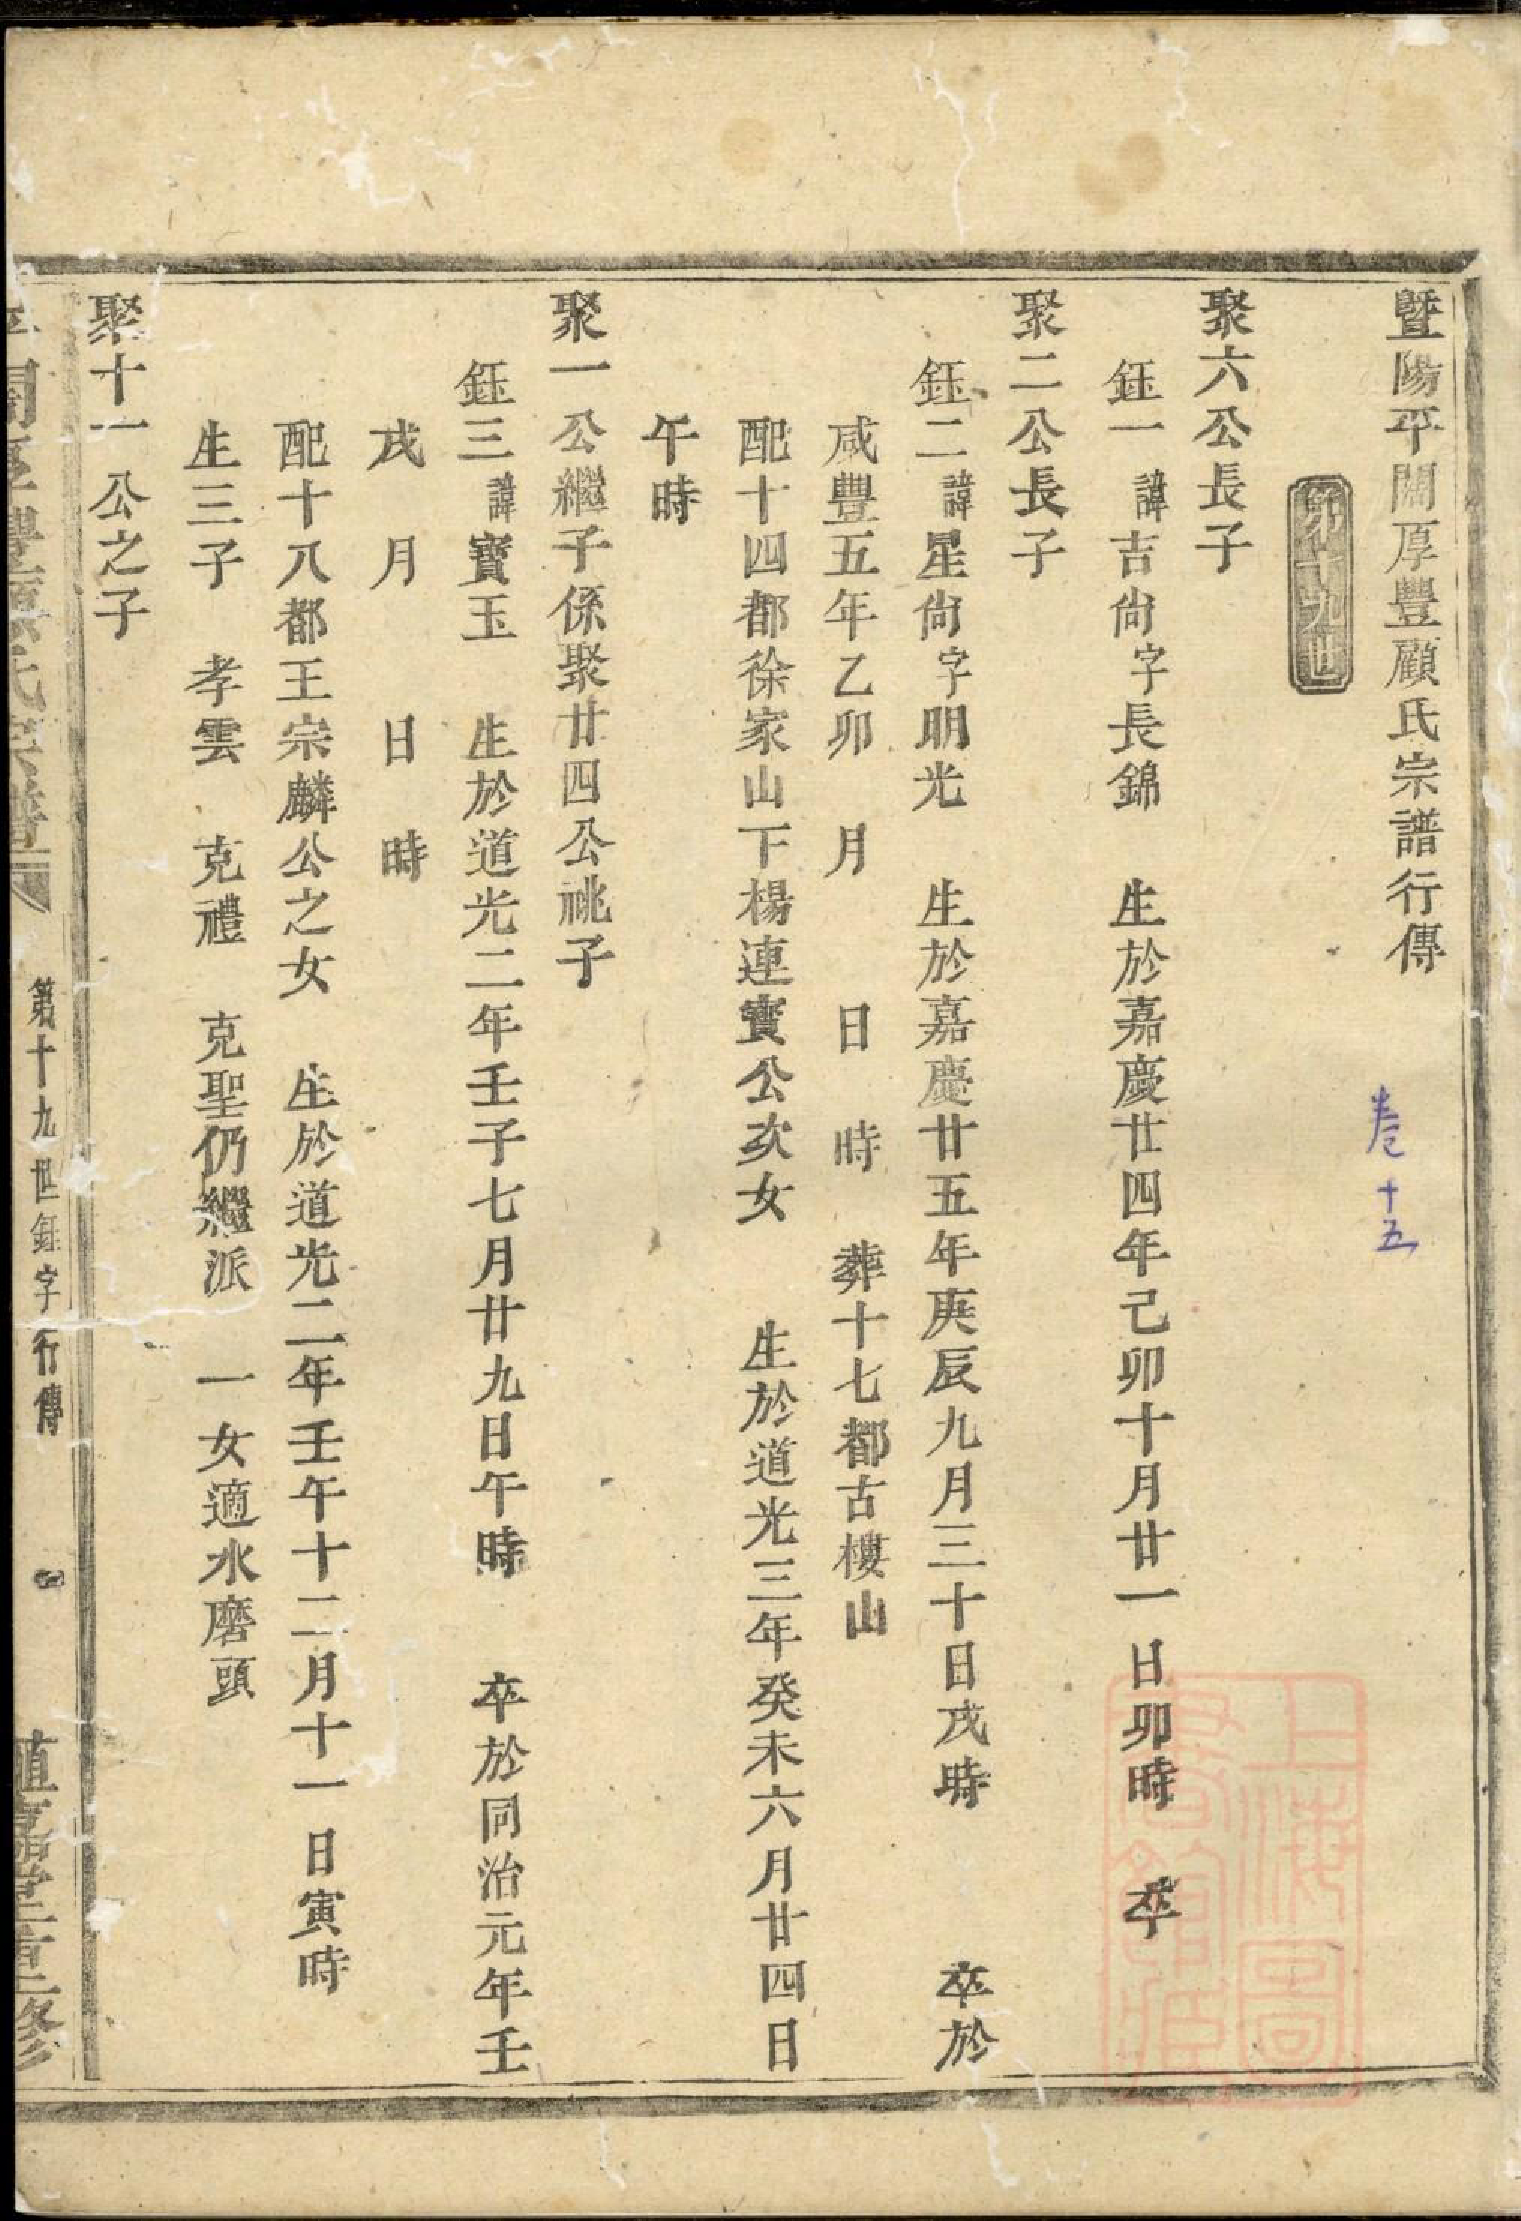 暨陽平闊厚豐顧氏宗譜行傳
卷十五
第十九世
聚六公長子
鈺一諱吉尙字長錦 生於嘉慶廿四年己卯十月廿一日卯時 卒
聚二公長子
鈺二諱星尙字明光 生於嘉慶廿五年庚辰九月三十日戌時 卒於
咸豐五年乙卯 月 日 時 葬十七都古樓山
配十四都徐家山下楊連寶公次女 生於道光三年癸未六月廿四日
午時
聚一公繼子係聚廿四公祧子
鈺三諱寶玉 生於道光二年壬子七月廿九日午時 卒於同治元年壬
戌 月 日 時
配十八都王宗麟公之女 生於道光二年壬午十二月十一日寅時
生三子 孝雲 克禮 克聖仍繼派 一女適水磨頭
聚十一公之子
氏宗譜 第十九世鈺字行傳 一 植嘉堂重修
上海圖書館藏